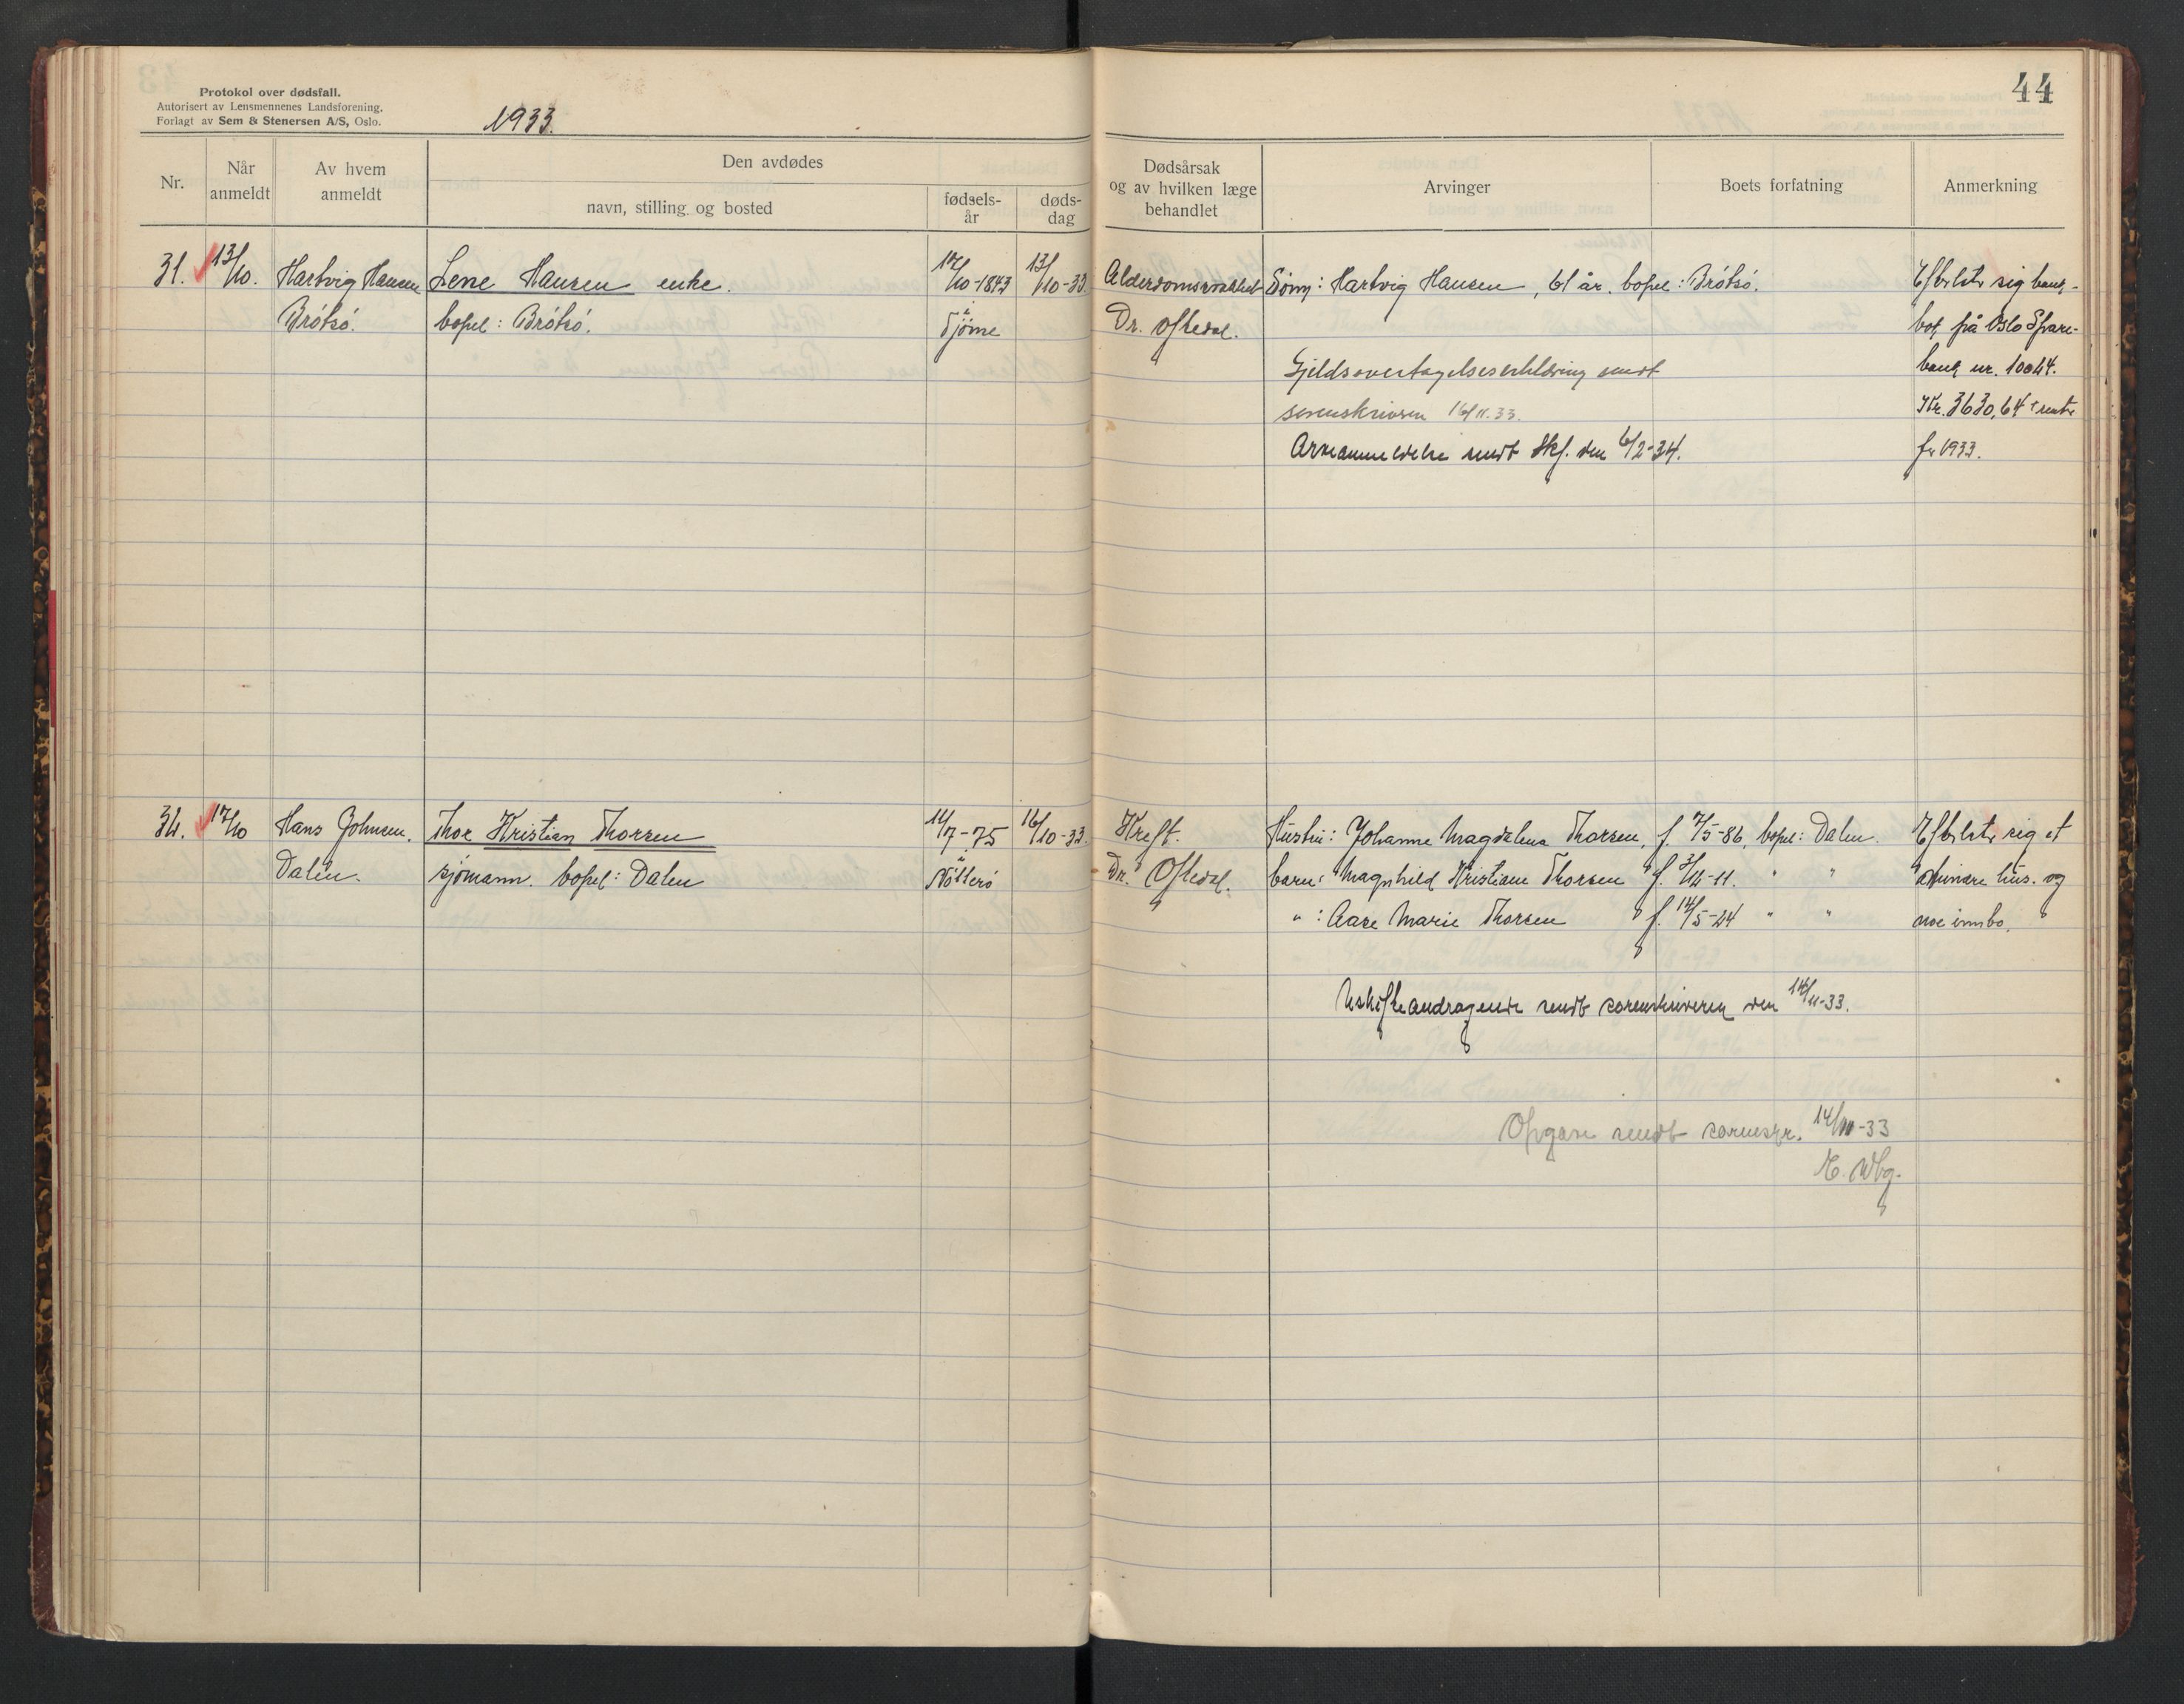 44
Protokol over dødsfall.
Autorisert av Lensmennenes Landsforening.
Forlagt av Sem & Stenersen A/S, Oslo.
1933.
Nr.
Når anmeldt
Av hvem anmeldt
Den avdødes
navn, stilling og bosted
fødsels-år
døds-dag
Dødsårsak og av hvilken læge behandlet
Arvinger
Boets forfatning
Anmerkning
31. 13/10. Hartvig Hansen Lene Hansen enke. 17/10-1843 13/10-33. Alderdomssvakhet Sønn: Hartvig Hansen, 61 år. bopel: Brötsö. Efterlot sig bank-
Brötsö. bopel: Brötsö. å Tjöme Dr. Oftedal. bok på Oslo Spare-
Gjeldsovertagelseserklæring sendt bank nr. 10044.
sorenskriveren 16/11.33. Kr. 3630,64 + rente
Arveanmeldelse sendt Skf. den 6/2-34. for 1933.
32. 17/10 Hans Johnsen. Thor Kristian Thorsen 14/7-75 16/10-33. Kreft. Hustru: Johanne Magdalena Thorsen, f. 7/5-86, bopel: Dalen. Efterlot sig et
Dalen. sjömann. bopel: Dalen å Nötterö Dr. Oftedal. barn: Magnhild Kristiane Thorsen f. 3/12-11. " " mindre hus. og
" : Aase Marie Thorsen f. 14/5-24 " " noe innbo.
Uskifteandragende sendt sorenskriveren den 14/11-33.
Opgave sendt sorenskr. 14/11-33